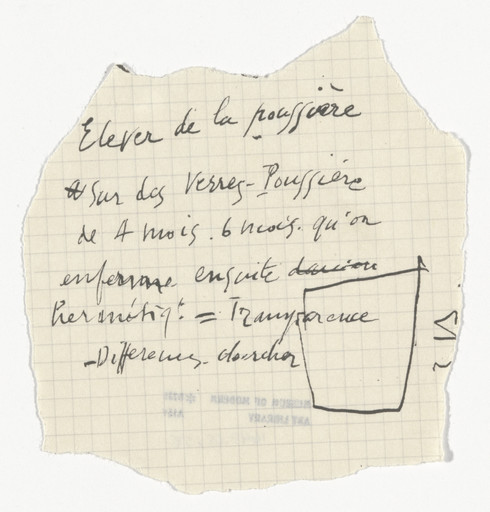 Elever de la poussière
Sur des Verres. Poussière
de 4 mois. 6 mois. qu'on
enferme ensuite
hermétiqt. = Transparence
- Differences. chercher
MUSEUM OF MODERN
ART LIBRARY